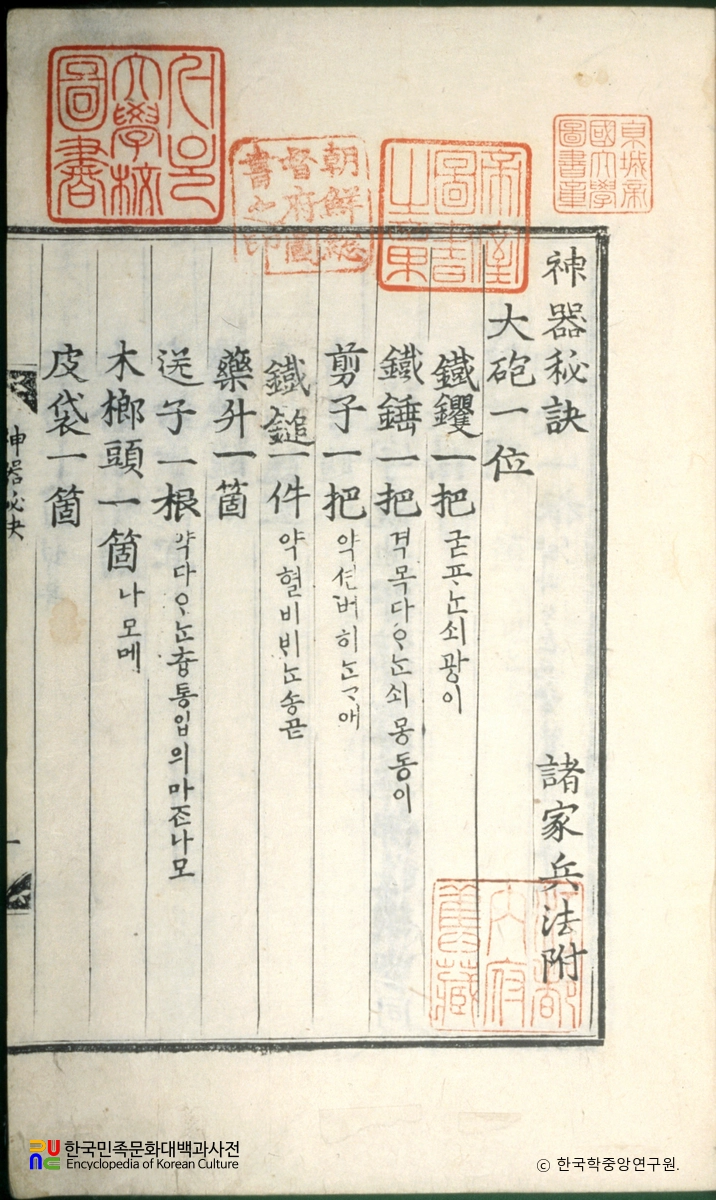 서울大學校圖書
朝鮮總督府圖書之印
帝室圖書之章
京城帝國大學圖書章
神器秘訣 諸家兵法附
大砲一位
鐵钁一把 굳ᄑᆞᄂᆞᆫ쇠광이
鐵錘一把 격목다ᄋᆞᄂᆞᆫ쇠몽동이
剪子一把 약션버히ᄂᆞᆫᄀᆞ애
鐵鎚一件 약혈비븨ᄂᆞᆫ송곧
藥升一箇
送子一根 약다ᄋᆞᄂᆞᆫ츕통입의마ᄌᆞᆫ나모
木榔頭一箇 나모메
皮袋一箇
神器秘訣
一
한국민족문화대백과사전
Encyclopedia of Korean Culture
© 한국학중앙연구원.